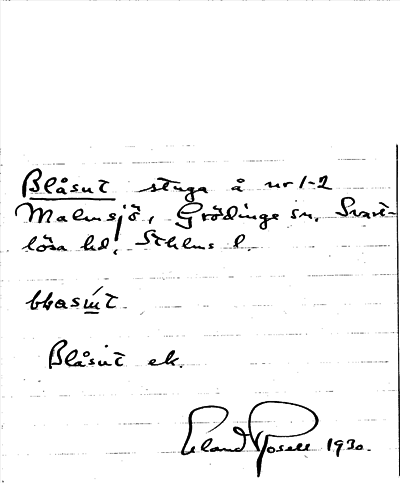 Blåsut stuga å nr 1-2
Malmsjö, Grödinge sn, Svart-
lösa hd, Sthlms l.
Blåsut ek.
Erland Rosell 1930.